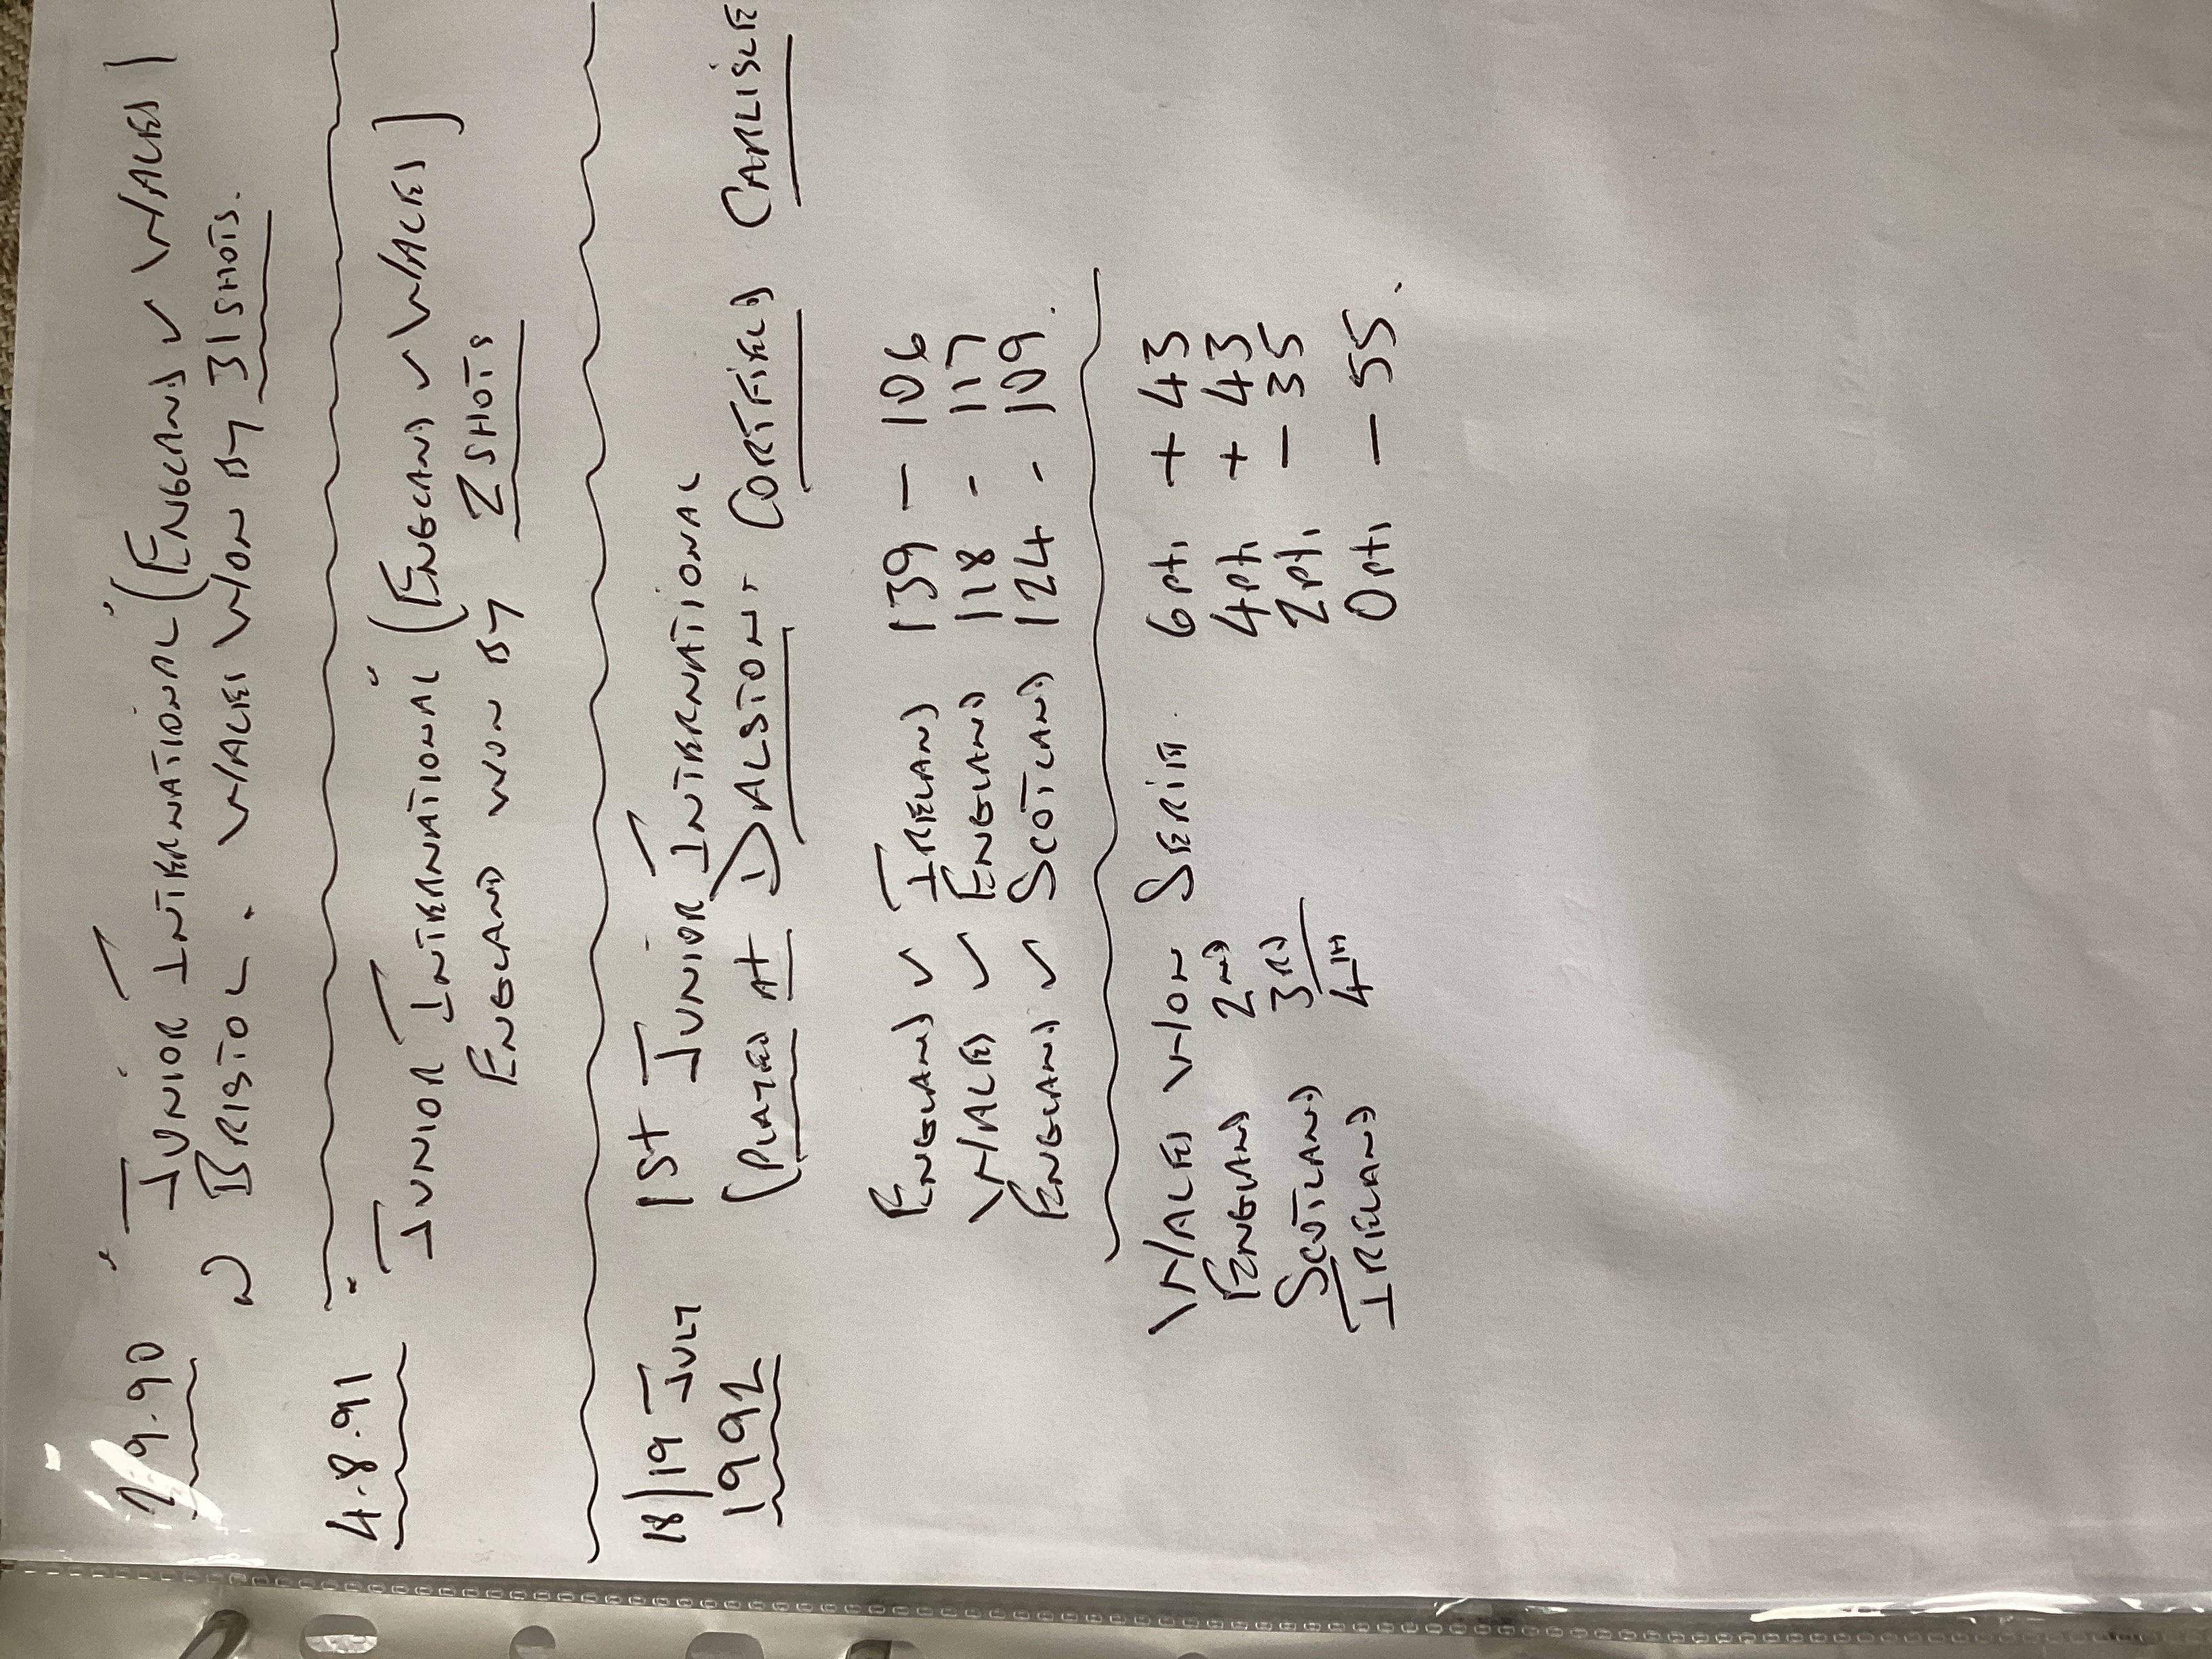 2.9.90 "JUNIOR INTERNATIONAL" (ENGLAND v WALES)
BRISTOL. WALES WON BY 31 SHOTS.
4.8.91 "JUNIOR INTERNATIONAL" (ENGLAND v WALES)
ENGLAND WON BY 2 SHOTS
18/19 JULY 1st JUNIOR INTERNATIONAL
1992 (PLAYED At DALSTON, CORTFIELD CARLISLE
ENGLAND v IRELAND 139 - 106
WALES v ENGLAND 118 - 117
ENGLAND v SCOTLAND 124 - 109.
WALES WON SERIES. 6 pts + 43
ENGLAND 2ND 4 pts + 43
SCOTLAND 3RD 2 pts - 35
IRELAND 4TH 0 pts - 55.